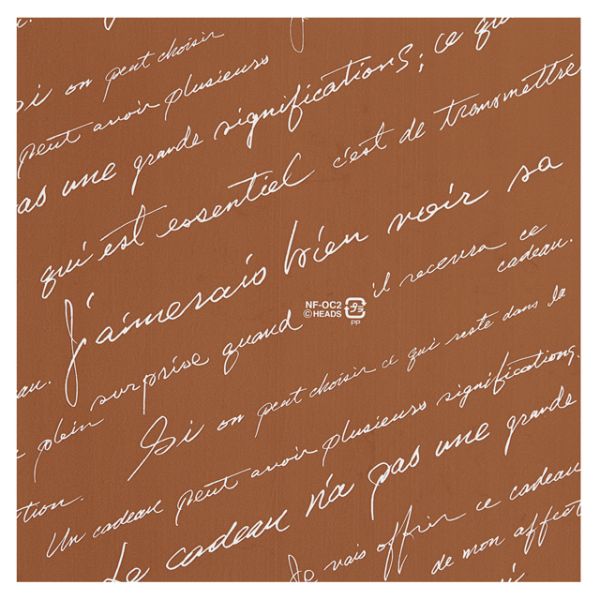 ce qu
Si on peut choisir
peut avoir plusieurs
as une grande significations;
qui est essentiel c'est de transmettre
J'aimerais bien voir sa
surprise quand il recevra ce
cadeau.
NF-OC2
©HEADS
プラ
PP
au.
plein
Si on peut choisir ce qui reste dans le
tion.
Un cadeau peut avoir plusieurs significations,
Le cadeau n'a pas une grande
Je vais offrir ce cadeau
de mon affect